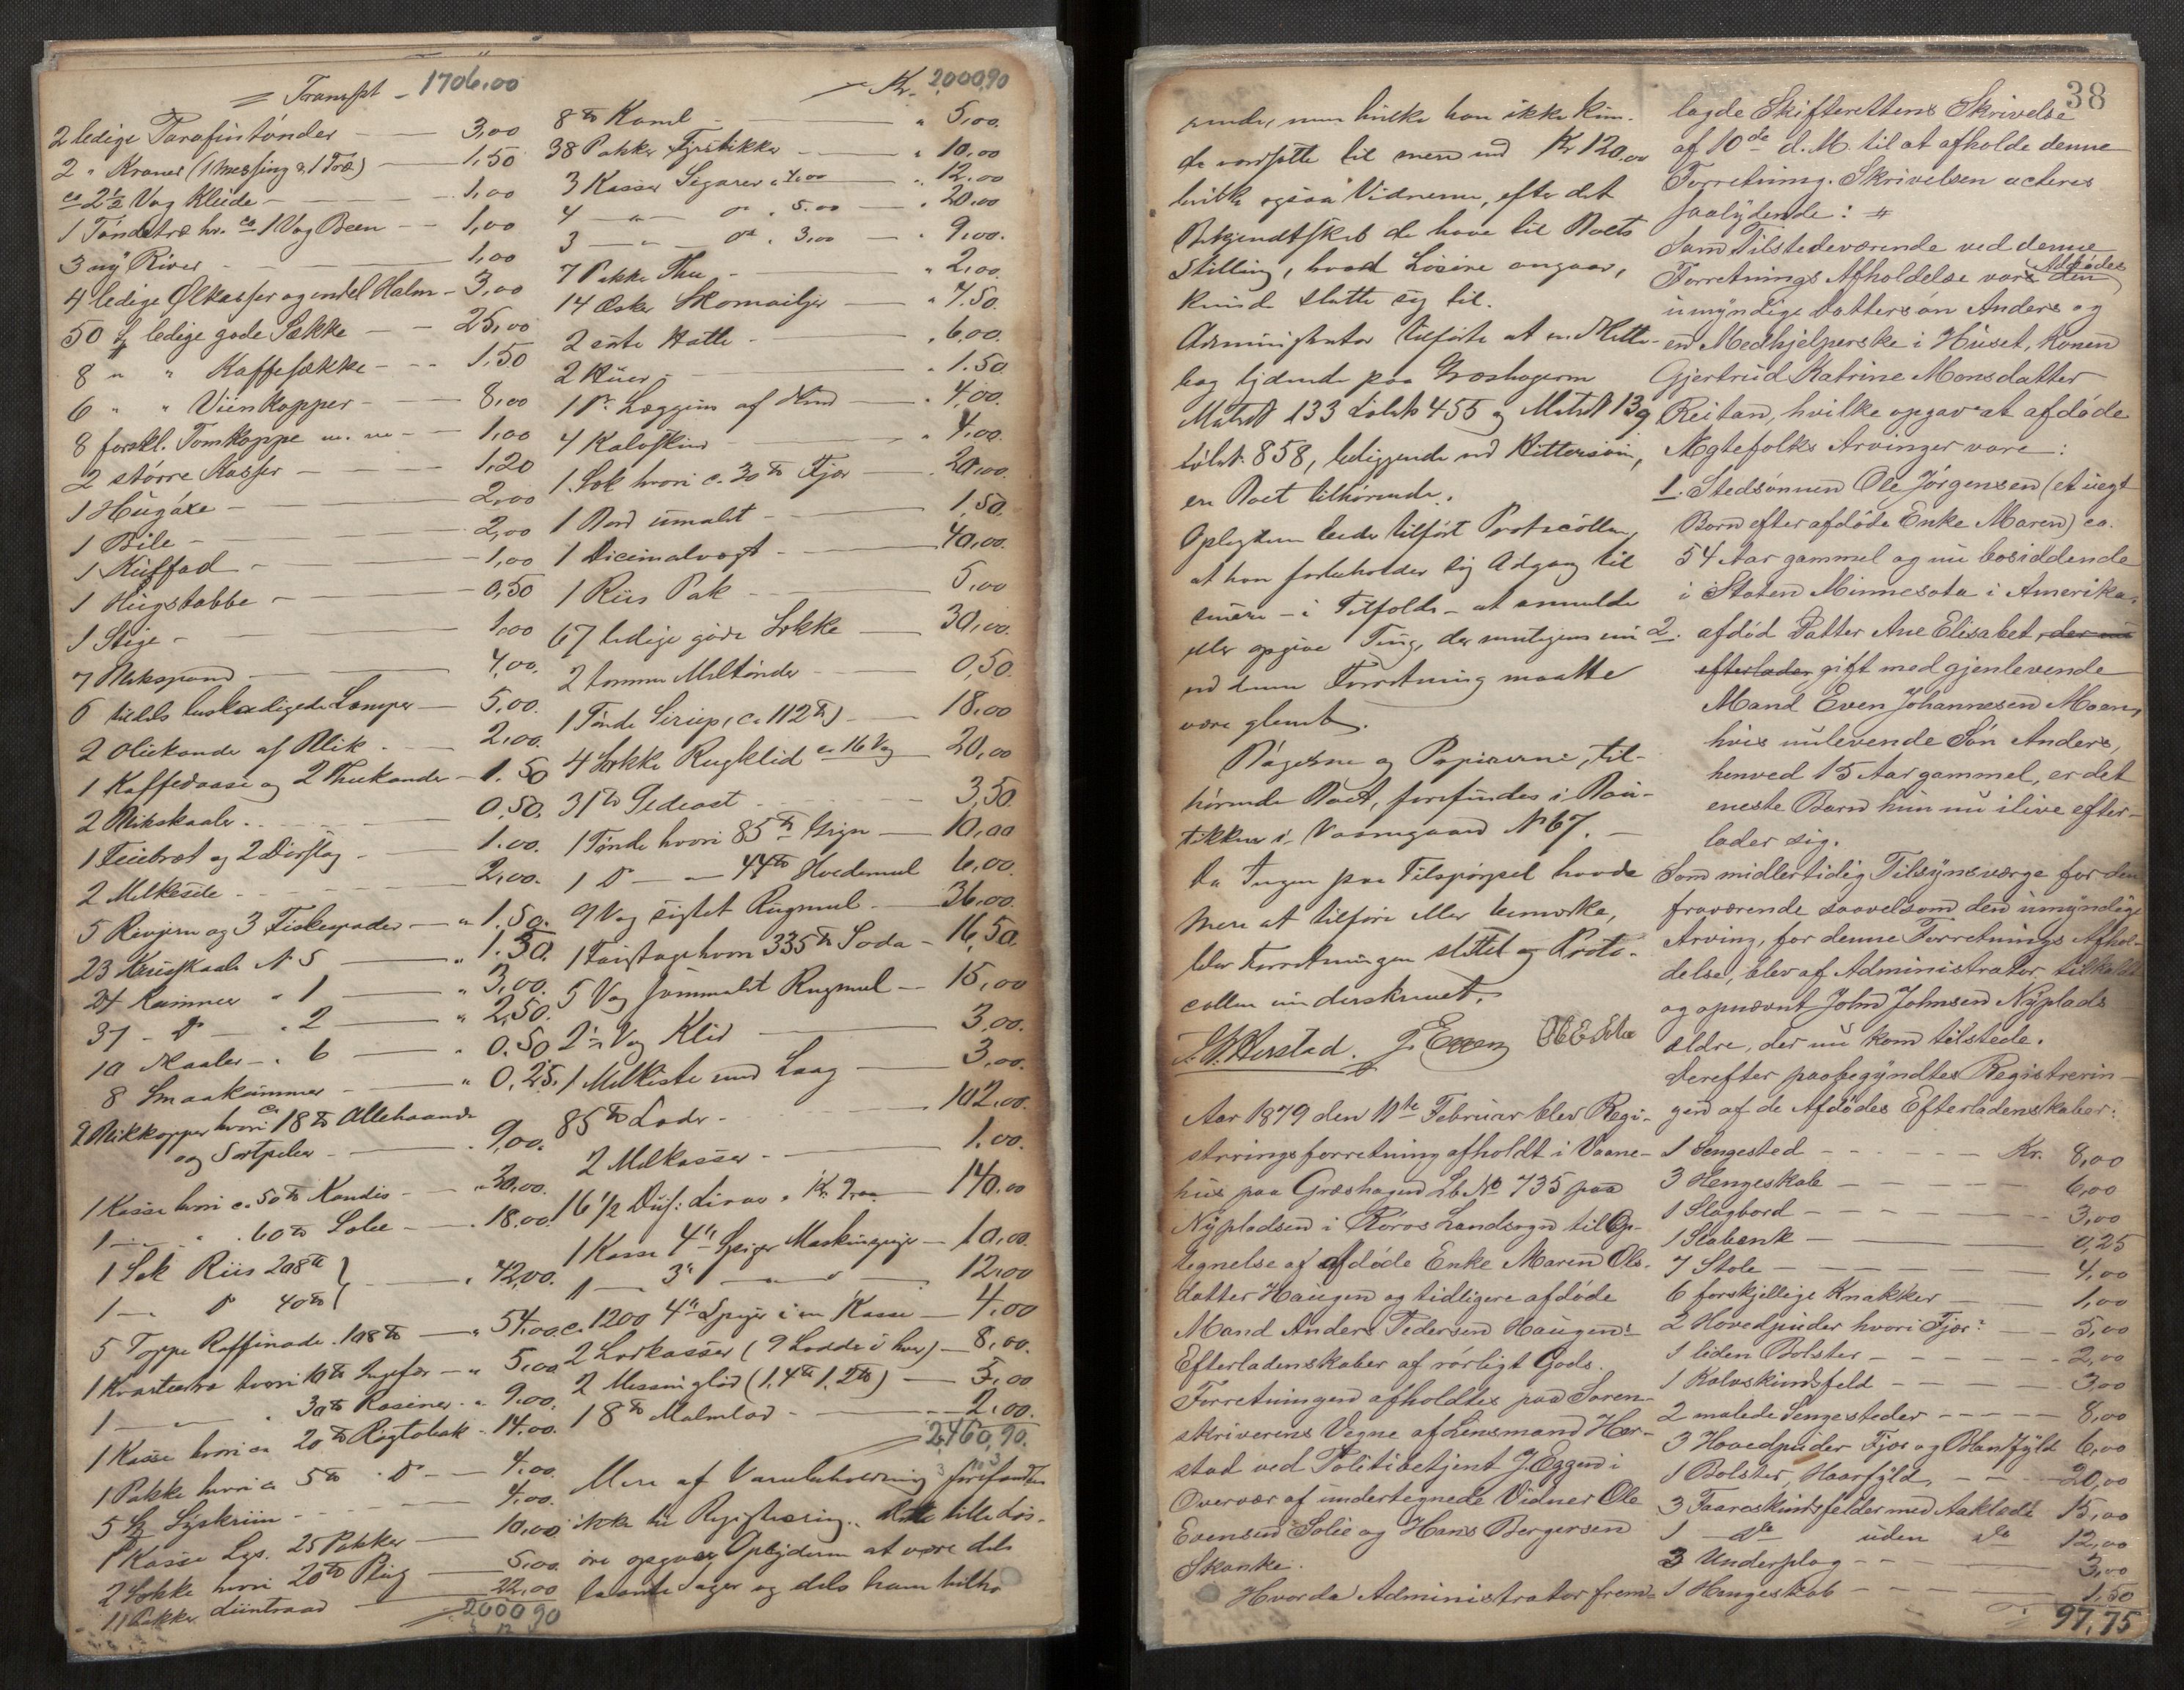 Transpt - 1706,00
2 ledige Parafintønder - 3,00
2 " Kraner (1 Messing & 1 Træ) - 1,50
ca 2 1/2 Vog Kliide - 1,00
1 Tøndetræ hv. ca 1 Vog Been - 1,00
3 ny River - 1,00
4 ledige Ølkasser og endel Halm - 3,00
50 ledige gode Sække - 25,00
8 " " Kaffesække - 1,50
6 " " Viinkopper - 8,00
8 forskl. Tomkoppe m. m. - 1,00
2 større Kasser - 1,20
1 Hugøxe - 2,00
1 Bile - 2,00
1 Kuffad - 1,00
1 Hugstabbe - 0,50
1 Stige - 1,00
7 Blikspand - 4,00.
6 tildels beskadigede Lamper - 5,00.
2 Oliekande af Blik - 2,00.
1 Kaffedaase og 2 Theekander - 1.50
2 Blikskaaler - 0,50.
1 Feiebræt og 2 Dørslag - 1.00.
2 Melkesile - 2,00.
5 Rivjern og 3 Fiskespader - " 1.50.
23 Kruuskaale No 5 - " 1.50.
24 Kummer " 1 - " 3,00.
37 - Do - " 2 - " 2,50.
10 Skaaler - " 6 - " 0.50
8 Smaakummer - " 0,25.
2 Blikkopper hvori ca 18 ℔ Allehaande
og Sortpeber - 9,00.
1 Kasse hvori c. 50 ℔ Kandis - " 30,00.
1 - " 60 ℔ - 18.00
1 Sæk Riis 208 ℔ }
1 - Do 40 ℔ } - " 42,00.
5 Toppe Raffinade 108 ℔ - " 54,00.
1 hvori 10 ℔ Ingefær - " 5,00
1 - " 30 ℔ Rosiner - " 9,00.
1 Kasse hvori ca 20 ℔ Røgtobak - 14,00.
1 Pakke hvori ca 5 ℔ Do - 4,00.
5 - 4,00.
1 Kasse Lys. 25 Pakker - 10,00
2 Sække hvori 20 ℔ - 5,00.
11 Pakker Liintraad - 22,00
2000 90
Kr. 2,000,90
8 ℔ Kanel - " 5,00.
38 Pakker Fyrstikker - " 10,00
3 Kasser Sigarer a 4,00 - " 12.00
4 - " - Do " 5.00 - " 20.00
3 - " - Do " 3,00 - " 9,00.
7 Pakke Thee - " 2,00.
14 Æsker - " 7.50.
2 sorte Hatte - " 6,00.
2 Huer - " 1.50
1 Pr. Leggins af Skind - " 4,00.
4 Kalvskind - " 4.00.
1 Sæk hvori c. 30 ℔ Fjær - 20,00.
1 Bord umalet - 1,50.
1 Dicimalvægt - 40,00.
1 Riis Pak - 5,00
67 ledige gode Sække - 30,00.
2 tomme Meltønder - 0,50.
1 Tønde Sirup, (c. 112 ℔) - 18,00
4 Sække Rugklid ca 16 Vog - 20,00
31 ℔ Gedeost - 3,50.
1 Tønde hvori 85 ℔ Gryn - 10,00
1 Do - 44 ℔ Hvedemel 6,00.
9 Vog sigtet Rugmel - 36,00.
1 hvori 335 ℔ Soda - 16,50.
5 Vog sammalet Rugmel - 15,00
2 1/2 Vog Klid - 3,00.
1 Melkiste med Laag - 3,00.
85 ℔ Læder - 102.00.
2 Melkasser - 1.00.
16 1/2 Dus: a Kr. 9,00 - 140,00
1 Kasse 4" Spiger Maskinspiger - 10,00.
1 - 3" - " - 12,00
c. 1200 4" Spiger i en Kasse - 4,00
2 Lodkasser (9 Lodde i hver) - 8,00.
2 Messinglod (1. 4 ℔ 1. 2 ℔) - 3,00
1 8 ℔ Malmlod - 2,00.
2460,90.
Mere af Varebeholdning forefandtes
ikke til Registrering. Lidt
øre opgav Oplyderen at være dels
laante Sager og dels ham tilhø
rende, men hvilke han ikke kun-
de værdsætte til mere end Kr 120,00
hvilke ogsaa Vidnerne, efter det
Bekjendtskab de have til Boets
Stilling, hvad Løsøre angaar,
kunde slutte sig til.
Administrator tilførte at en
lydende paa Græshagerne
Matrl. 133 Løbek 455 og Matrl 139
Løbek 858, beliggende ved Hittersøin,
er Boet tilhørende.
Oplyderen lader tilført Protocollen,
at han forbeholder sig Adgang til
senere - i Tilfælde - at anmelde
eller opgive Ting, der muligens nu
ved denne Forretning maatte
være glemt.
Bøgerne og Papirerne, til-
hørende Boet, forefindes i Bou-
tikken i Vaanegaard No 67. -
Da Ingen paa Tilspørgsel havde
Mere at tilføre eller bemærke,
blev Forretningen sluttet og Proto-
collen underskrevet.
Herstad. J. Eggen
Aar 1879 den 11te Februar blev Regi-
streringsforretning afholdt i Vaane-
hus paa Græshagen Lb No 735 paa
Nypladsen i Røros Landsogn til Op-
tegnelse af afdøde Enke Maren Ols-
datter Haugen og tidligere afdøde
Mand Anders Pedersen Haugens
Efterladenskaber af rørligt Gods.
Forretningen afholdtes paa Soren-
skriverens Vegne af Lensmand Her-
stad ved Politibetjent J. Eggen i
Overvær af undertegnede Vidner Ole
Evensen Solie og Hans Bergersen
Skanke.
Hvorda Administrator frem-
38
lagde Skifterettens Skrivelse
af 10de d. M. til at afholde denne
Forretning. Skrivelsen acteres
saalydende: #
Som Tilstedeværende ved denne
Forretnings Afholdelse vare den Afdødes
umyndige Dattersøn Anders og
en Medhjelperske i Huset, Konen
Gjertrud Katrine Monsdatter
Reitan, hvilke opgav at afdøde
Ægtefolks Arvinger vare:
1. Stedsønnen Ole Jørgensen (et uegt
Barn efter afdøde Enke Maren) ca.
54 Aar gammel og nu bosiddende
i Staten Minnesota i Amerika.
2. afdød Datter Ane Elisabet, der nu
efterlader gift med gjenlevende
Mand Even Johannesen Moen,
hvis nulevende Søn Anders,
henved 15 Aar gammel, er det
eneste Barn hun nu ilive efter-
lader sig.
Som midlertidig Tilsynsværge for den
fraværende saavelsom den umyndige
Arving, for denne Forretnings Afhol-
delse, blev af Administrator tilkaldt
og opnævnt John Johnsen Nyplads
ældre, der nu kom tilstede.
Derefter paabegyndtes Registrerin-
gen af de Afdødes Efterladenskaber:
1 Sengested - Kr. 8,00
3 Hengeskabe - 6,00
1 Slagbord - 3,00
1 Slabenk - 0,25
7 Stole - 4,00
6 forskjellige Knakker - 1,00
2 Hovedpuder hvori Fjær - 5,00
1 liden Bolster - 2,00
1 Kalvskindsfeld - 3,00
2 malede Sengesteder - 8,00
3 Hovedpuder Fjær og Blandfyld 6,00
1 Bolster, Haarfyld, - 20,00
3 Faareskindsfelder med Aaklæde 15,00
1 do uden do 12,00
3 Underplag - 3,00
1 Hengeskab - 1,50
97,75